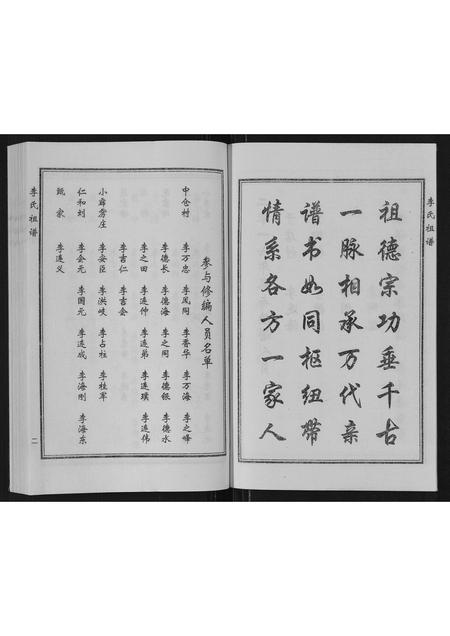 李氏祖谱
祖德宗功垂千古
一脉相承万代亲
谱书如同枢纽带
情系各方一家人
参与修编人员名单
中仓村 李万忠 李凤阁 李晋华 李万海 李之峰
李德长 李德海 李之周 李德银 李德水
李之田 李连仲 李连弟 李连璞 李连伟
李吉仁 李吉会
小寨房庄 李安臣 李洪岐 李占柱 李桂军
仁和刘 李会元 李国元 李连成 李海刚 李海东
家 李连义
李氏祖谱
二